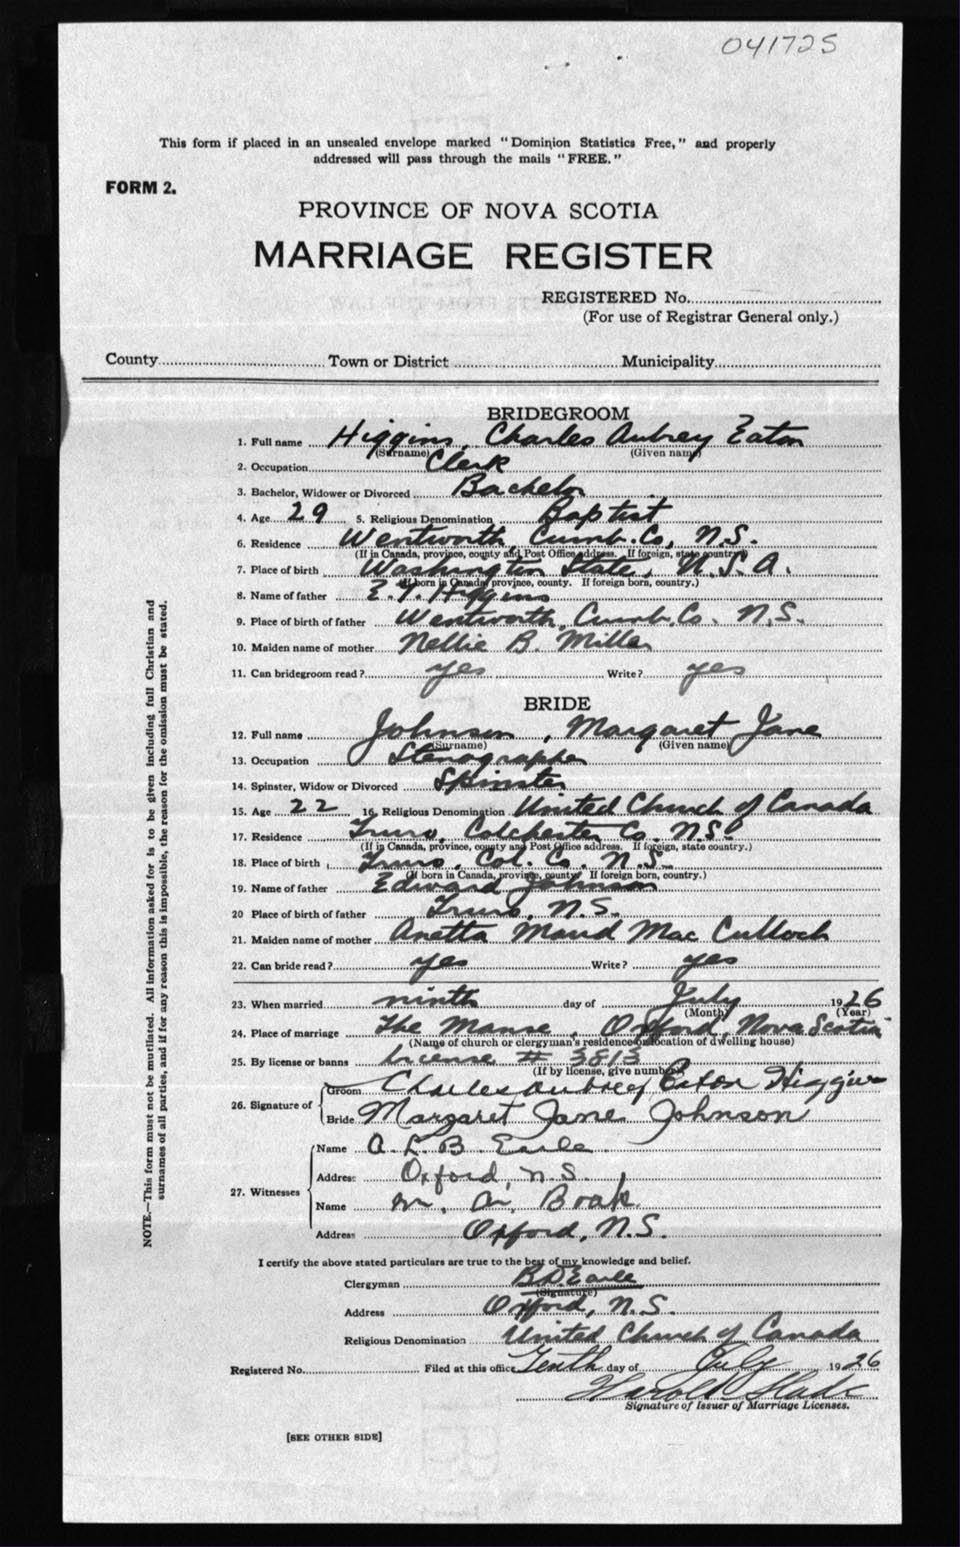 041725
This form if placed in an unsealed envelope marked "Dominion Statistics Free," and properly
addressed will pass through the mails "FREE."
FORM 2.
PROVINCE OF NOVA SCOTIA
MARRIAGE REGISTER
REGISTERED No.
(For use of Registrar General only.)
County Town or District Municipality
BRIDEGROOM
1. Full name Higgins, Charles Aubrey Eaton
(Surname) (Given name)
2. Occupation Clerk
3. Bachelor, Widower or Divorced Bachelor
4. Age 29 5. Religious Denomination Baptist
6. Residence Wentworth, Cumb. Co, N.S.
(If in Canada, province, county and Post Office address. If foreign, state country)
7. Place of birth Washington State, U.S.A.
(If born in Canada, province, county. If foreign born, country.)
8. Name of father E. Y. Higgins
9. Place of birth of father Wentworth, Cumb. Co. N.S.
10. Maiden name of mother Nellie B. Miller
11. Can bridegroom read? yes Write? yes
BRIDE
12. Full name Johnson, Margaret Jane
(Surname) (Given name)
13. Occupation Stenographer
14. Spinster, Widow or Divorced Spinster
15. Age 22 16. Religious Denomination United Church of Canada
17. Residence Truro, Colchester Co. N.S.
(If in Canada, province, county and Post Office address. If foreign, state country.)
18. Place of birth Truro, Col. Co. N.S.
(If born in Canada, province, county. If foreign born, country.)
19. Name of father Edward Johnson
20 Place of birth of father Truro, N.S.
21. Maiden name of mother Anetta Maud MacCulloch
22. Can bride read? yes Write? yes
23. When married ninth day of July 1926
(Month) (Year)
24. Place of marriage The Manse, Oxford, Nova Scotia
(Name of church or clergyman's residence or location of dwelling house)
25. By license or banns License # 3813
(If by license, give number)
26. Signature of Groom Charles Aubrey Eaton Higgins
Bride Margaret Jane Johnson
27. Witnesses Name A. L. B. Earle
Address Oxford, N.S.
Name M. A. Boak
Address Oxford, N.S.
I certify the above stated particulars are true to the best of my knowledge and belief.
Clergyman B.D. Earle
(Signature)
Address Oxford, N.S.
Religious Denomination United Church of Canada
Registered No. Filed at this office Tenth day of July 1926
Harold
Signature of Issuer of Marriage Licenses.
[SEE OTHER SIDE]
NOTE.—This form must not be mutilated. All information asked for is to be given including full Christian and
surnames of all parties, and if for any reason this is impossible, the reason for the omission must be stated.